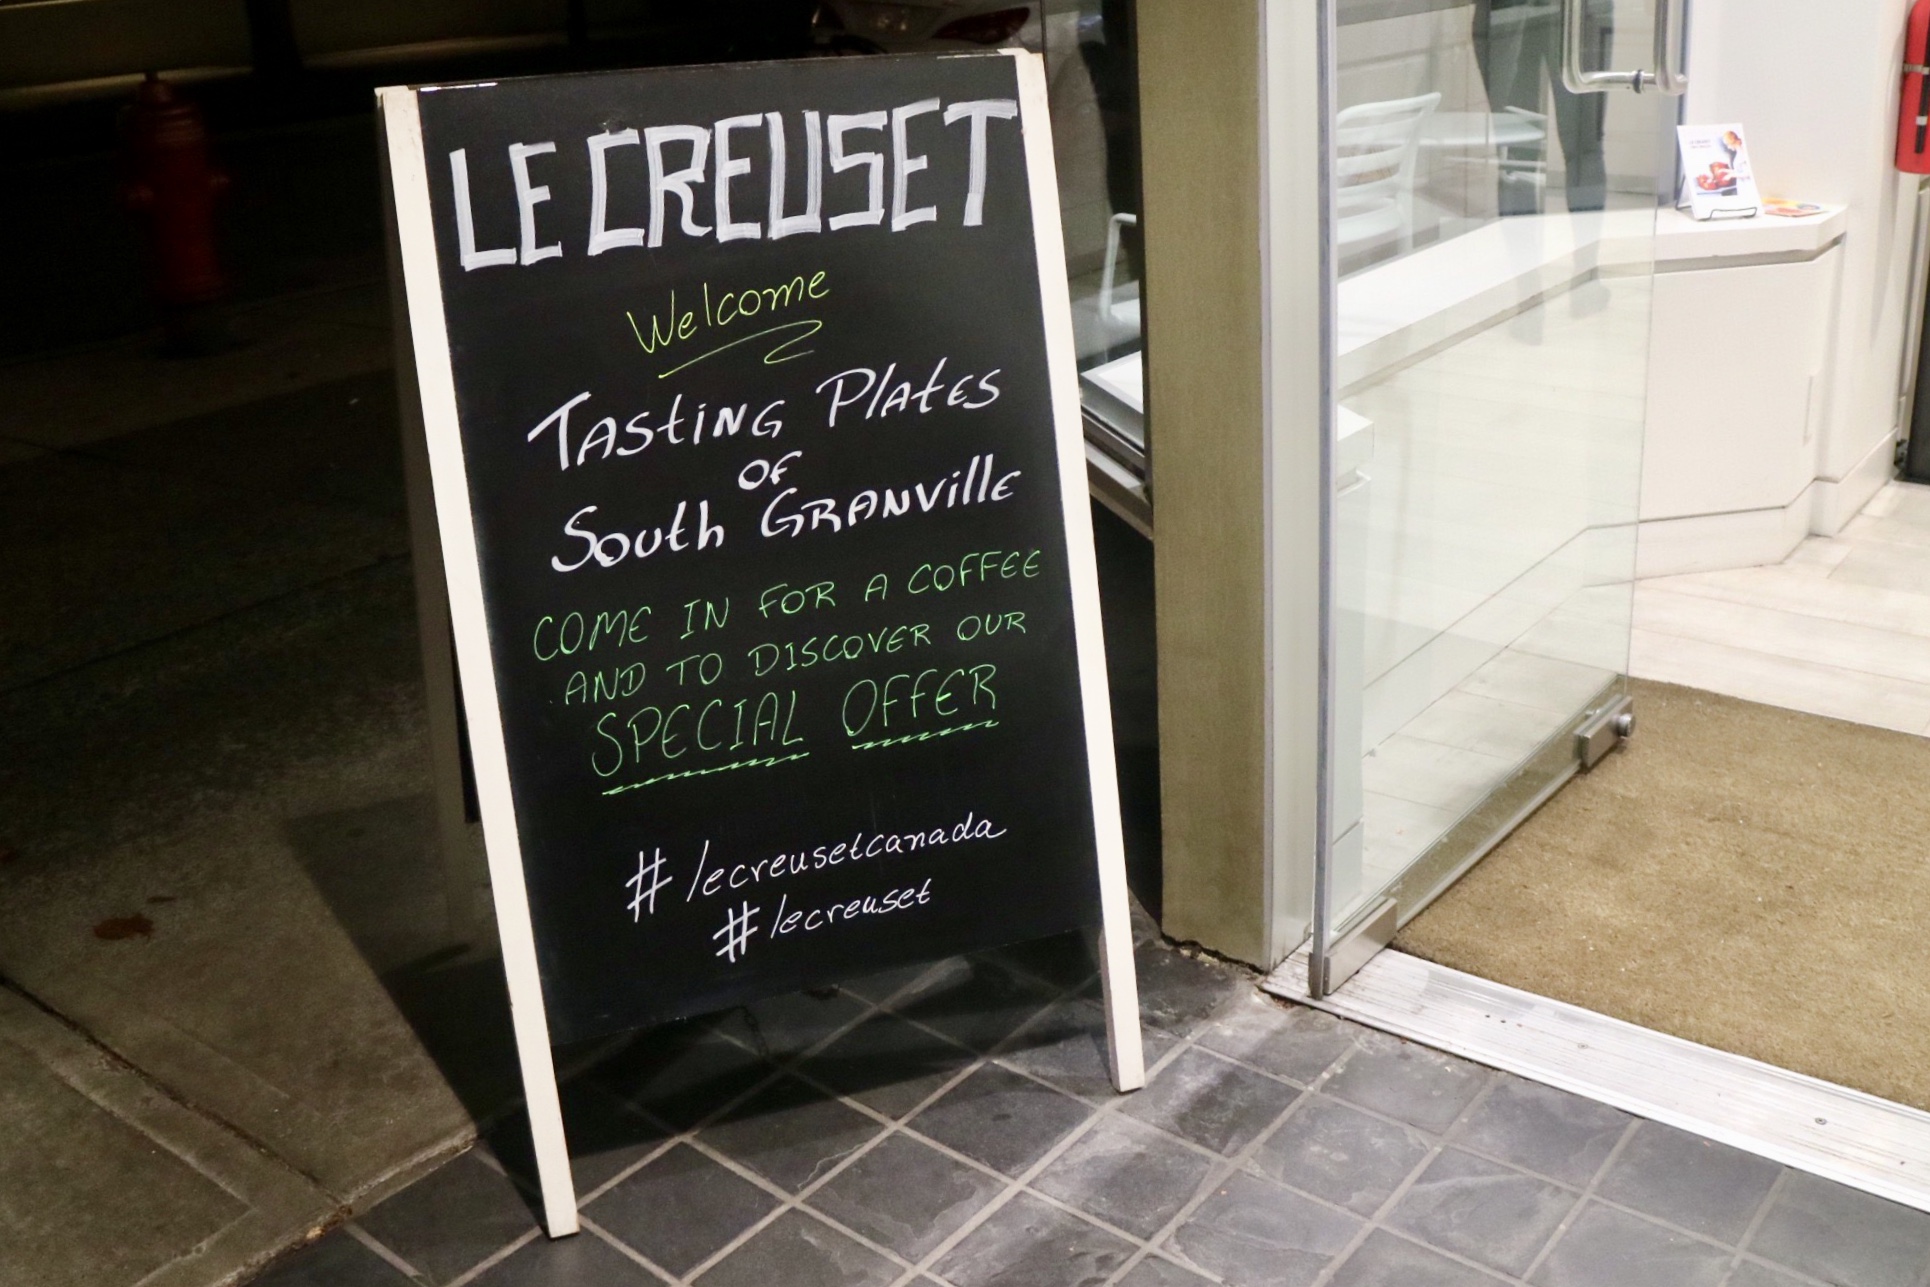 LE CREUSET
Welcome
TASTING PLATES
OF
SOUTH GRANVILLE
COME IN FOR A COFFEE
AND TO DISCOVER OUR
SPECIAL OFFER
#lecreusetcanada
#lecreuset